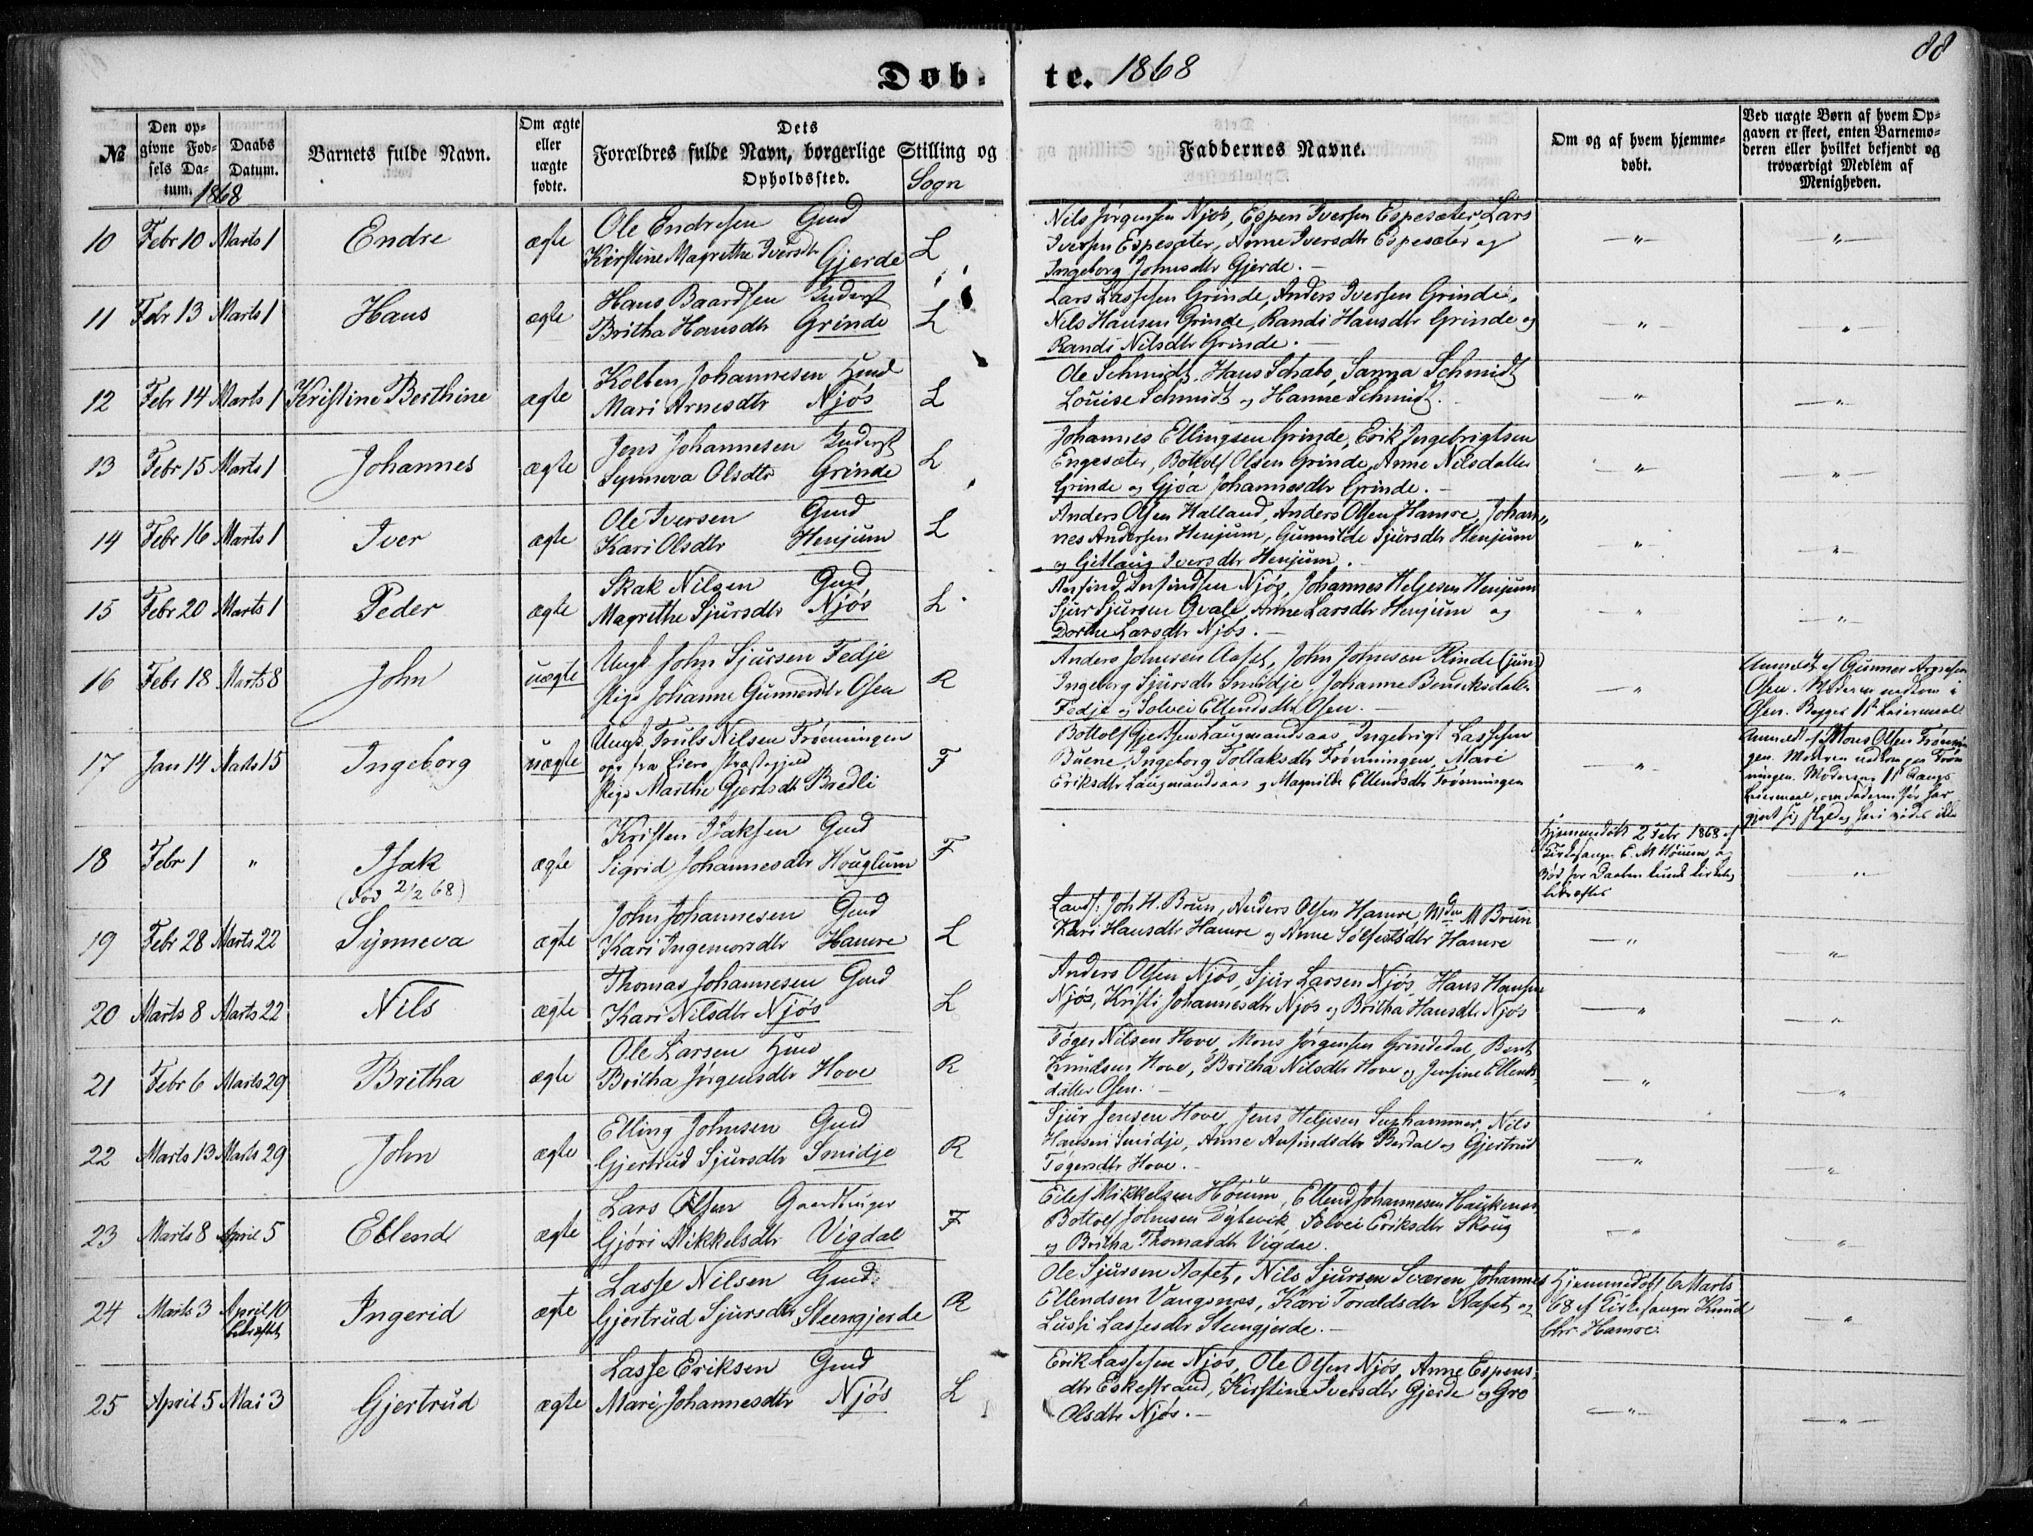 88
Døb- te. 1868
№
Den op-
givne Fød-
sels Da-
tum. 1868
Daabs
Datum.
Barnets fulde Navn.
Om ægte
eller
uægte
fødte.
Dets
Forældres fulde Navn, borgerlige Stilling og
Opholdssted. Sogn
Faddernes Navne.
Om og af hvem hjemme-
døbt.
Ved uægte Børn af hvem Op-
gaven er skeet, enten Barnemo-
deren eller hvilket bekjendt og
troværdigt Medlem af
Menigheden.
10 Febr 10 Marts 1 Endre ægte
Ole Endresen Gmd
Kirstine Magrethe Iversdtr Gjerde L
Nils Jørgensen Njøs, Espen Iversen Espesæter, Lars
Iversen Espesæter, Anne Iversdtr Espesæter og
Ingeborg Johnsdtr Gjerde. —
11 Febr 13 Marts 1 Hans ægte
Hans Baardsen Inderst
Britha Hansdtr Grinde L
Lars Lassesen Grinde, Anders Iversen Grinde,
Nils Hansen Grinde, Randi Hansdtr Grinde og
Randi Nilsdtr Grinde. —
12 Febr 14 Marts 1 Kristine Berthine ægte
Kolben Johannesen Hmd
Mari Arnesdtr Njøs L
Ole Schmidt, Hans Schabo, Sanna Schmidt
Louise Schmidt og Hanne Schmidt.
13 Febr 15 Marts 1 Johannes ægte
Jens Johannesen Inderst
Synneva Olsdtr Grinde L
Johannes Ellingsen Grinde, Erik Ingebrigtsen
Engesæter, Bottolf Olsen Grinde, Anne Nilsdatter
Grinde og Gjøa Johannesdtr Grinde. —
14 Febr 16 Marts 1 Iver ægte
Ole Iversen Gmd
Kari Olsdtr Henjum L
Anders Olsen Halland, Anders Olsen Hamre, Johan-
nes Andersen Henjum, Gunnilde Sjursdtr Henjum
og Gitlaug Iversdtr Henjum.
15 Febr 20 Marts 1 Peder ægte
Skak Nilsen Gmd
Magrethe Sjursdtr Njøs L
Anfind Anfindsen Njøs, Johannes Helgesen Henjum
Sjur Sjursen Qvale, Anne Larsdtr Henjum og
Dorthe Larsdtr Njøs. —
16 Febr 18 Marts 8 John uægte
Ungk. John Sjursen Fedje
Pige Johanne Gunnersdtr Osen R
Anders Johnsen Aafet, John Johnsen Rinde (jun)
Ingeborg Sjursdtr Smidje, Johanne Benediksdatter
Fedje og Solvei Ellendsdtr Osen. —
Anmeldt af Gunner
Osen. Moderen nedkom i
Osen. Begges 1ste Leiermaal
17 Jan 14 Marts 15 Ingeborg uægte
Ungk. Truls Nilsen Frønningen
Pige Marthe Gjertsdtr Bredli F
Bottolf Gjertsen Laugmandsaas, Ingebrigt Lassesen
Buene, Ingeborg Tollaksdtr Frønningen, Mari
Eriksdtr Laugmandsaas og Magnilde Ellendsdtr Frønningen
Anmeldt af Mons Olsen Frønin-
gen. Moderen nedkom paa Frøn-
ningen. Moderens 1ste Gangs
18 Febr 1 " Isak ægte
(død 2/2 68)
Kristen Isaksen Gmd
Sigrid Johannesdtr Houglum F
Hjemmedøbt 2 Febr 1868 af
Kirkesanger E. M Høium og
død før Daaben kunde kirkelig
bekræftes
19 Febr 28 Marts 22 Synneva ægte
John Johannesen Gmd
Kari Ingemorsdtr Hamre L
Landh. Joh H. Brun, Anders Olsen Hamre, Mdm M Brun
Kari Hansdtr Hamre og Anne Sølfestsdtr Hamre
20 Marts 8 Marts 22 Nils ægte
Thomas Johannesen Gmd
Kari Nilsdtr Njøs L
Anders Olsen Njøs, Sjur Larsen Njøs, Hans Hansen
Njøs, Kristi Johannesdtr Njøs og Britha Hansdtr Njøs
21 Febr 6 Marts 29 Britha ægte
Ole Larsen Hmd
Britha Jørgensdtr Hove R
Tøger Nilsen Hove, Mons Jørgensen Grindedal, Bent
Knudsen Hove, Britha Nilsdtr Hove og Jensine Ellends-
datter Osen. —
22 Marts 13 Marts 29 John ægte
Elling Johnsen Gmd
Gjertrud Sjursdtr Smidje R
Sjur Jensen Hove, Jens Heljesen Suphammer, Nils
Hansen Smidje, Anne Anfindsdtr Berdal og Gjertrud
Tøgersdtr Hove. —
23 Marts 8 April 5 Ellend ægte
Lars Olsen Gaardbruger
Gjøri Mikkelsdtr Vigdal F
Eilef Mikkelsen Høium, Ellend Johannesen Haukenæs
Bottolf Johnsen Dybevik, Solvei Eriksdtr Skoug
og Britha Thomasdtr Vigdal.
24 Marts 3 April 10 Ingerid ægte
bekræftet
Lasse Nilsen Gmd.
Gjertrud Sjursdtr Steengjerde R
Ole Sjursen Aafet, Nils Sjursen Sværen, Johannes
Ellendsen Vangsnes, Kari Toraldsdtr Aafet og
Lussi Lassesdtr Stengjerde. —
Hjemmedøbt 6 Marts
68 af Kirkesanger Knud
Hamre
25 April 5 Mai 3 Gjertrud ægte
Lasse Eriksen Gmd
Mari Johannesdtr Njøs L
Erik Lassesen Njøs, Ole Olsen Njøs, Anne Espens-
dtr Eskestrand, Kirstine Iversdtr Gjerde og Gro
Olsdtr Njøs. —